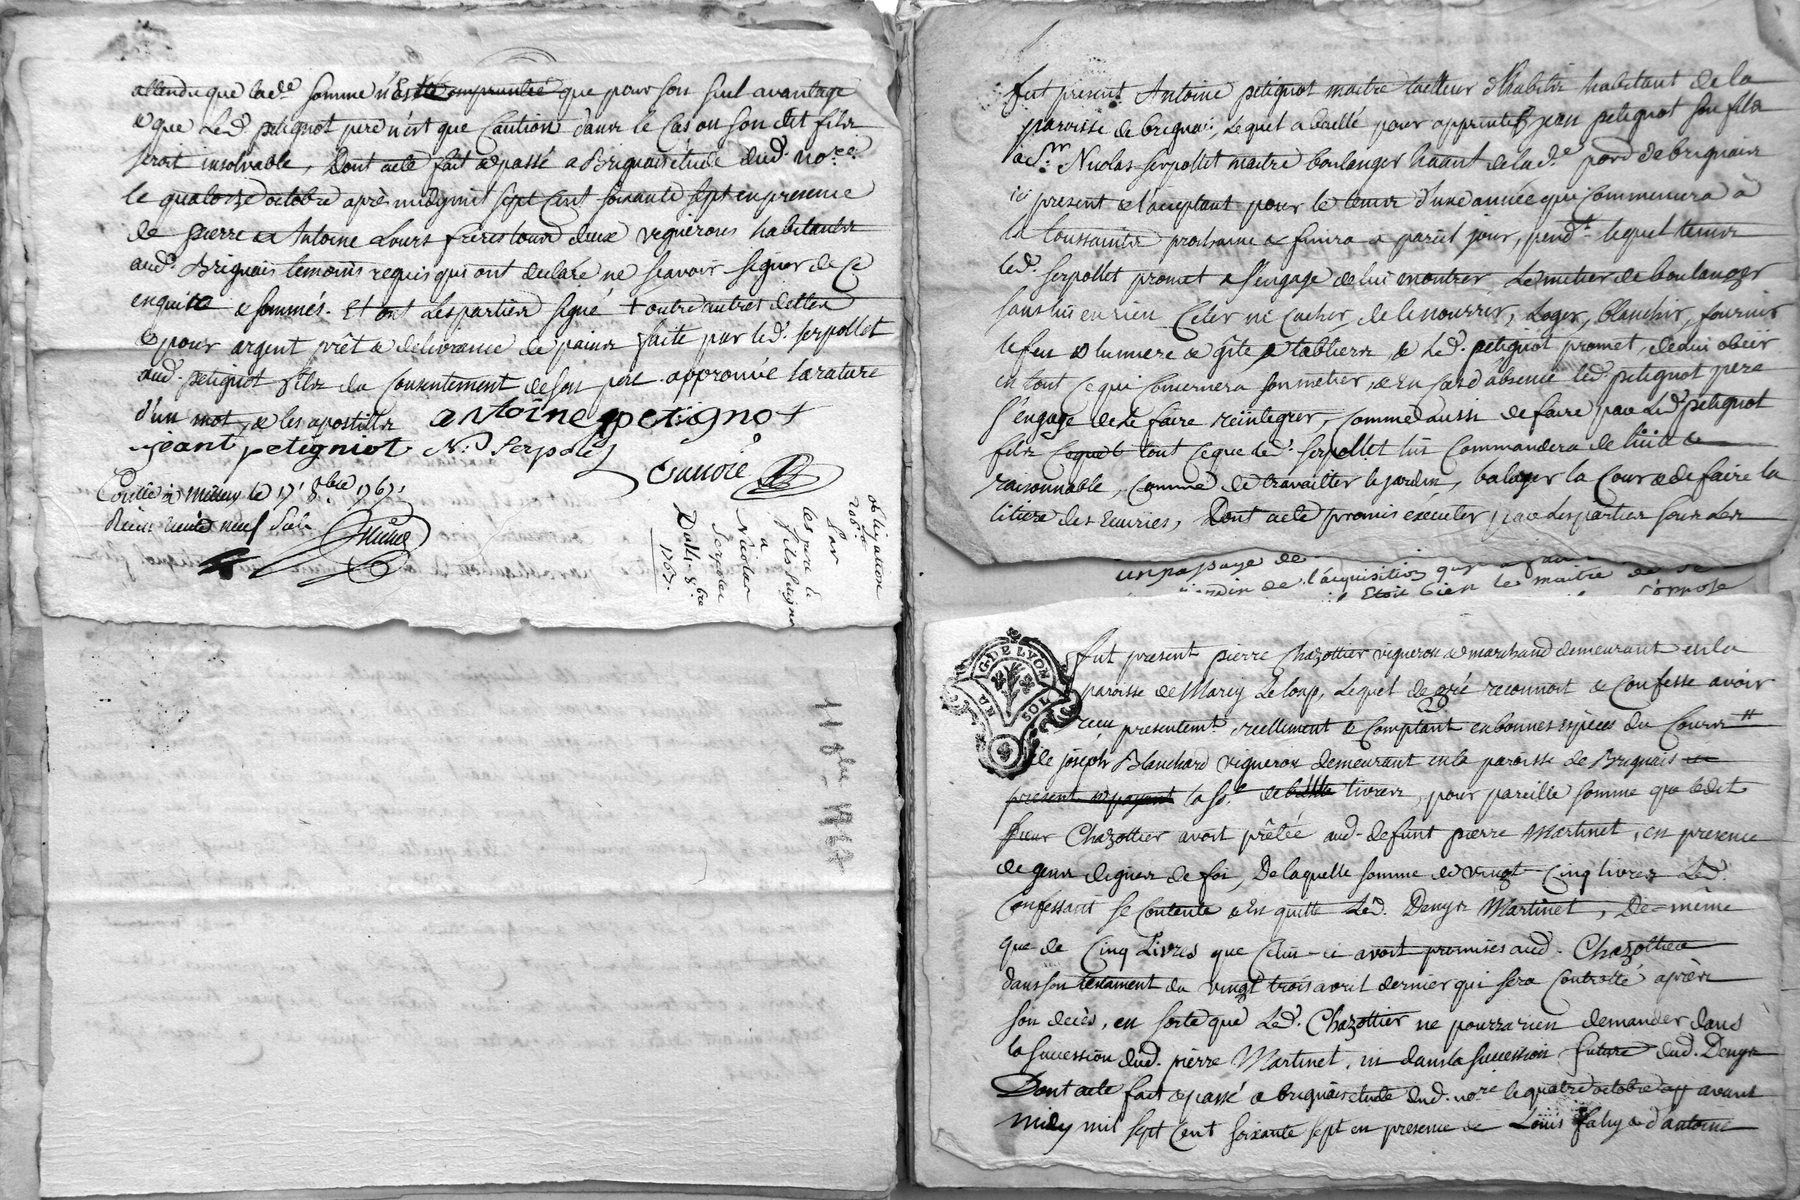 attendu que lad.e somme n'est empruntée que pour son seul avantage
& que led. petignot pere n'est que Caution dans le Cas ou son dit fils
seroit insolvable, Dont acte fait & passé a Brignais étude dud. no.re
le quatorze octobre après midy mil sept Cent soixante sept en presence
de pierre & Antoine Lours freres tous deux vignerons habitants
aud. Brignais temoins requis qui ont declaré ne sçavoir signer de Ce
enquis & sommés. Et ont Les parties signé + outre autres dettes
& pour argent prêt & delivrance de pains faite par led. Serpollet
aud. petignot fils du Consentement de son pere. approuvé la rature
d'un mot, & les apostilles antoine petignot
jeant petigniot N. Serpolet
Conllé à Millery le 17 8bre 1767
Reçu neuf Sols
obligation
de 206
par
les pere &
fils petignot
a
Nicolas
Serpolet
Du 14 8bre
1767.
11 8bre 1767
fut present Antoine petignot maitre tailleur d'habits habitant de la
paroisse de brignais Lequel a baillé pour apprentif jean petignot son fils
a Sr. Nicolas Serpollet maitre boulanger hâant de lad.e par.se de brignais
ici present & acceptant pour le tems d'une année qui Commencera à
la toussaints prochaine & finira a pareil jour, pend.t lequel tems
led. Serpollet promet & s'engage de lui montrer le metier de boulanger
sans lui en rien Celer ni Cacher, de le nourrir, loger, blanchir, fournir
le feu & lumiere & gite, & tabliers, & Led. petignot promet, de lui obéir
en tout Ce qui Concernera son métier, & En Cas d'absence led. petignot pere
s'engage de le faire reintegrer, Comme aussi de faire par Led. petignot
fils tout Ce que led. Serpollet lui Commandera de licite &
raisonnable, Comme de travailler le jardin, balayer la Cour & de faire la
litiere des Ecuries, Dont acte promis executer par Les parties sous Les
un passage de
jardin de l'acquisition que
Etoit bien le maitre de se
s'oppose
G. DE LYON
SOL
fut present pierre Chazottier vigneron & marchand demeurant en la
paroisse de Marcy Le loup, Lequel de gré reconnoit & Confesse avoir
reçu presentemt. reellement & Comptant en bonnes espèces du Cours
de joseph Blanchard vigneron demeurant en la paroisse de Brignais
present & payant la so.e de livres, pour pareille somme que ledit
sieur Chazottier avoit prêtée aud. defunt pierre Martinet, en presence
de gens dignes de foi, De laquelle somme de vingt Cinq livres Led.
Confessant se Contente & En quitte Led. Denys Martinet, De même
que de Cinq Livres que Celui-ci avoit promises aud. Chazottier
dans son testament du vingt trois avril dernier qui sera Controllé après
son decès, en sorte que Led. Chazottier ne pourra rien demander dans
la succession dud. pierre Martinet, ni dans la succession future dud. Denys
Dont acte fait & passé a brignais etude dud. no.re le quatre octobre avant
Midy mil sept Cent soixante sept en presence de Louis fahy & d'antoine